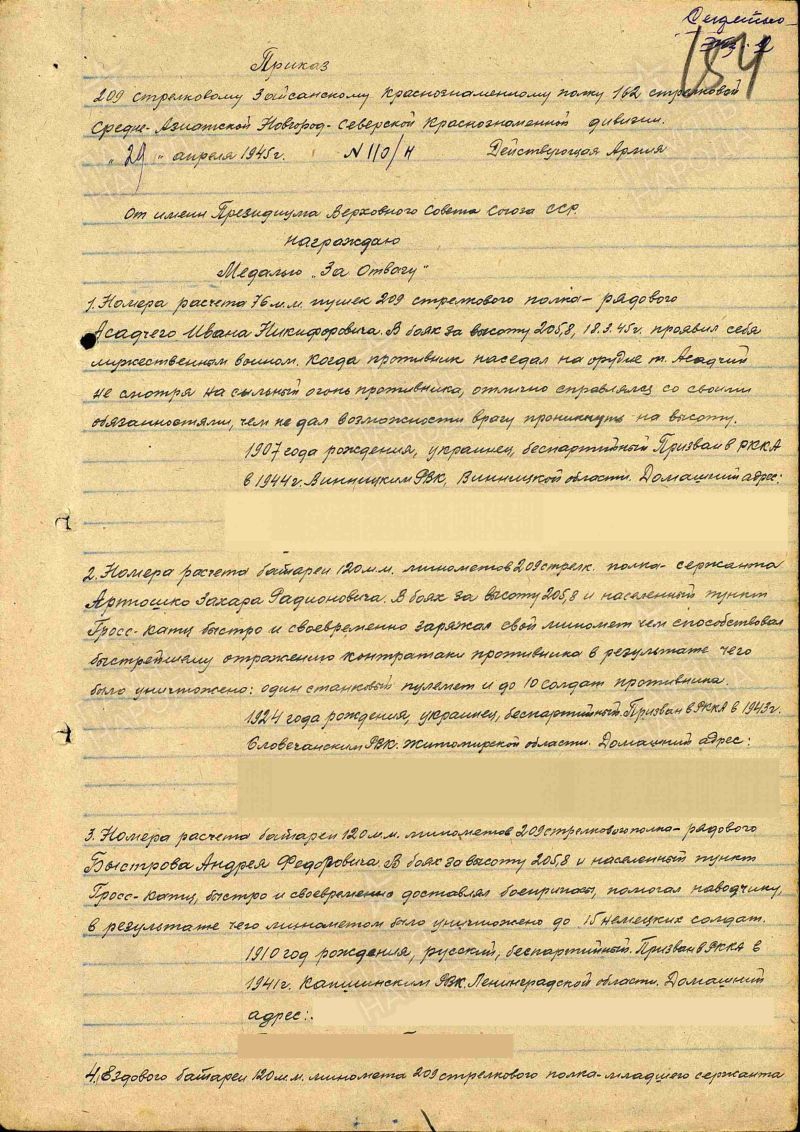 184
Приказ
209 стрелковому Зайсанскому Краснознаменному полку 162 стрелковой
Средне-Азиатской Новгород-Северской Краснознаменной дивизии.
"29" апреля 1945г. N 110/н Действующая Армия
От имени Президиума Верховного Совета Союза ССР.
награждаю
Медалью „За Отвагу"
1. Номера расчета 76 м.м. пушек 209 стрелкового полка – рядового
Асадчего Ивана Никифоровича. В боях за высоту 205,8, 18.3.45г. проявил себя
мужественным воином. Когда противник наседал на орудие т. Асадчий
не смотря на сильный огонь противника, отлично справлялся со своими
обязанностями, чем не дал возможности врагу проникнуть на высоту.
1907 года рождения, украинец, беспартийный Призван в РККА
в 1944г. Винницким РВК, Винницкой области. Домашний адрес:
2. Номера расчета батареи 120 м.м. минометов 209 стрелк. полка – сержанта
Артюшко Захара Радионовича. В боях за высоту 205,8 и населенный пункт
Гросс-Катц быстро и своевременно заряжал свой миномет чем способствовал
быстрейшему отражению контратаки противника в результате чего
было уничтожено: один станковый пулемет и до 10 солдат противника.
1924 года рождения, украинец, беспартийный. Призван в РККА в 1943г.
Словечанским РВК. Житомирской области. Домашний адрес:
3. Номера расчета батареи 120 м.м. минометов 209 стрелкового полка – рядового
Быстрова Андрея Федоровича. В боях за высоту 205,8 и населенный пункт
Гросс-Катц, быстро и своевременно доставлял боеприпасы, помогал наводчику,
в результате чего минометом было уничтожено до 15 немецких солдат.
1910 год рождения, русский, беспартийный. Призван в РККА в
1941г. Капшинским РВК. Ленинградской области. Домашний
адрес:.
4. Ездового батареи 120 м.м. миномета 209 стрелкового полка – младшего сержанта